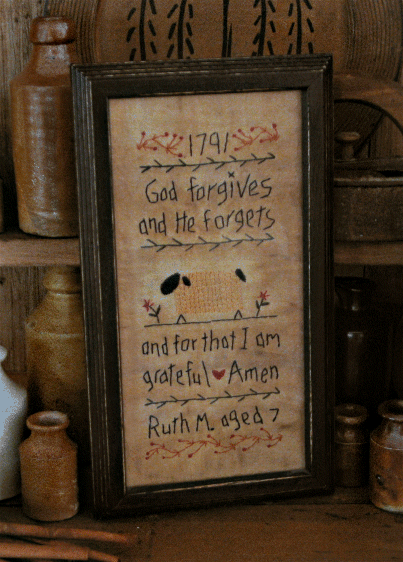 1791
God forgives
and He forgets
and for that I am
grateful Amen
Ruth M. aged 7